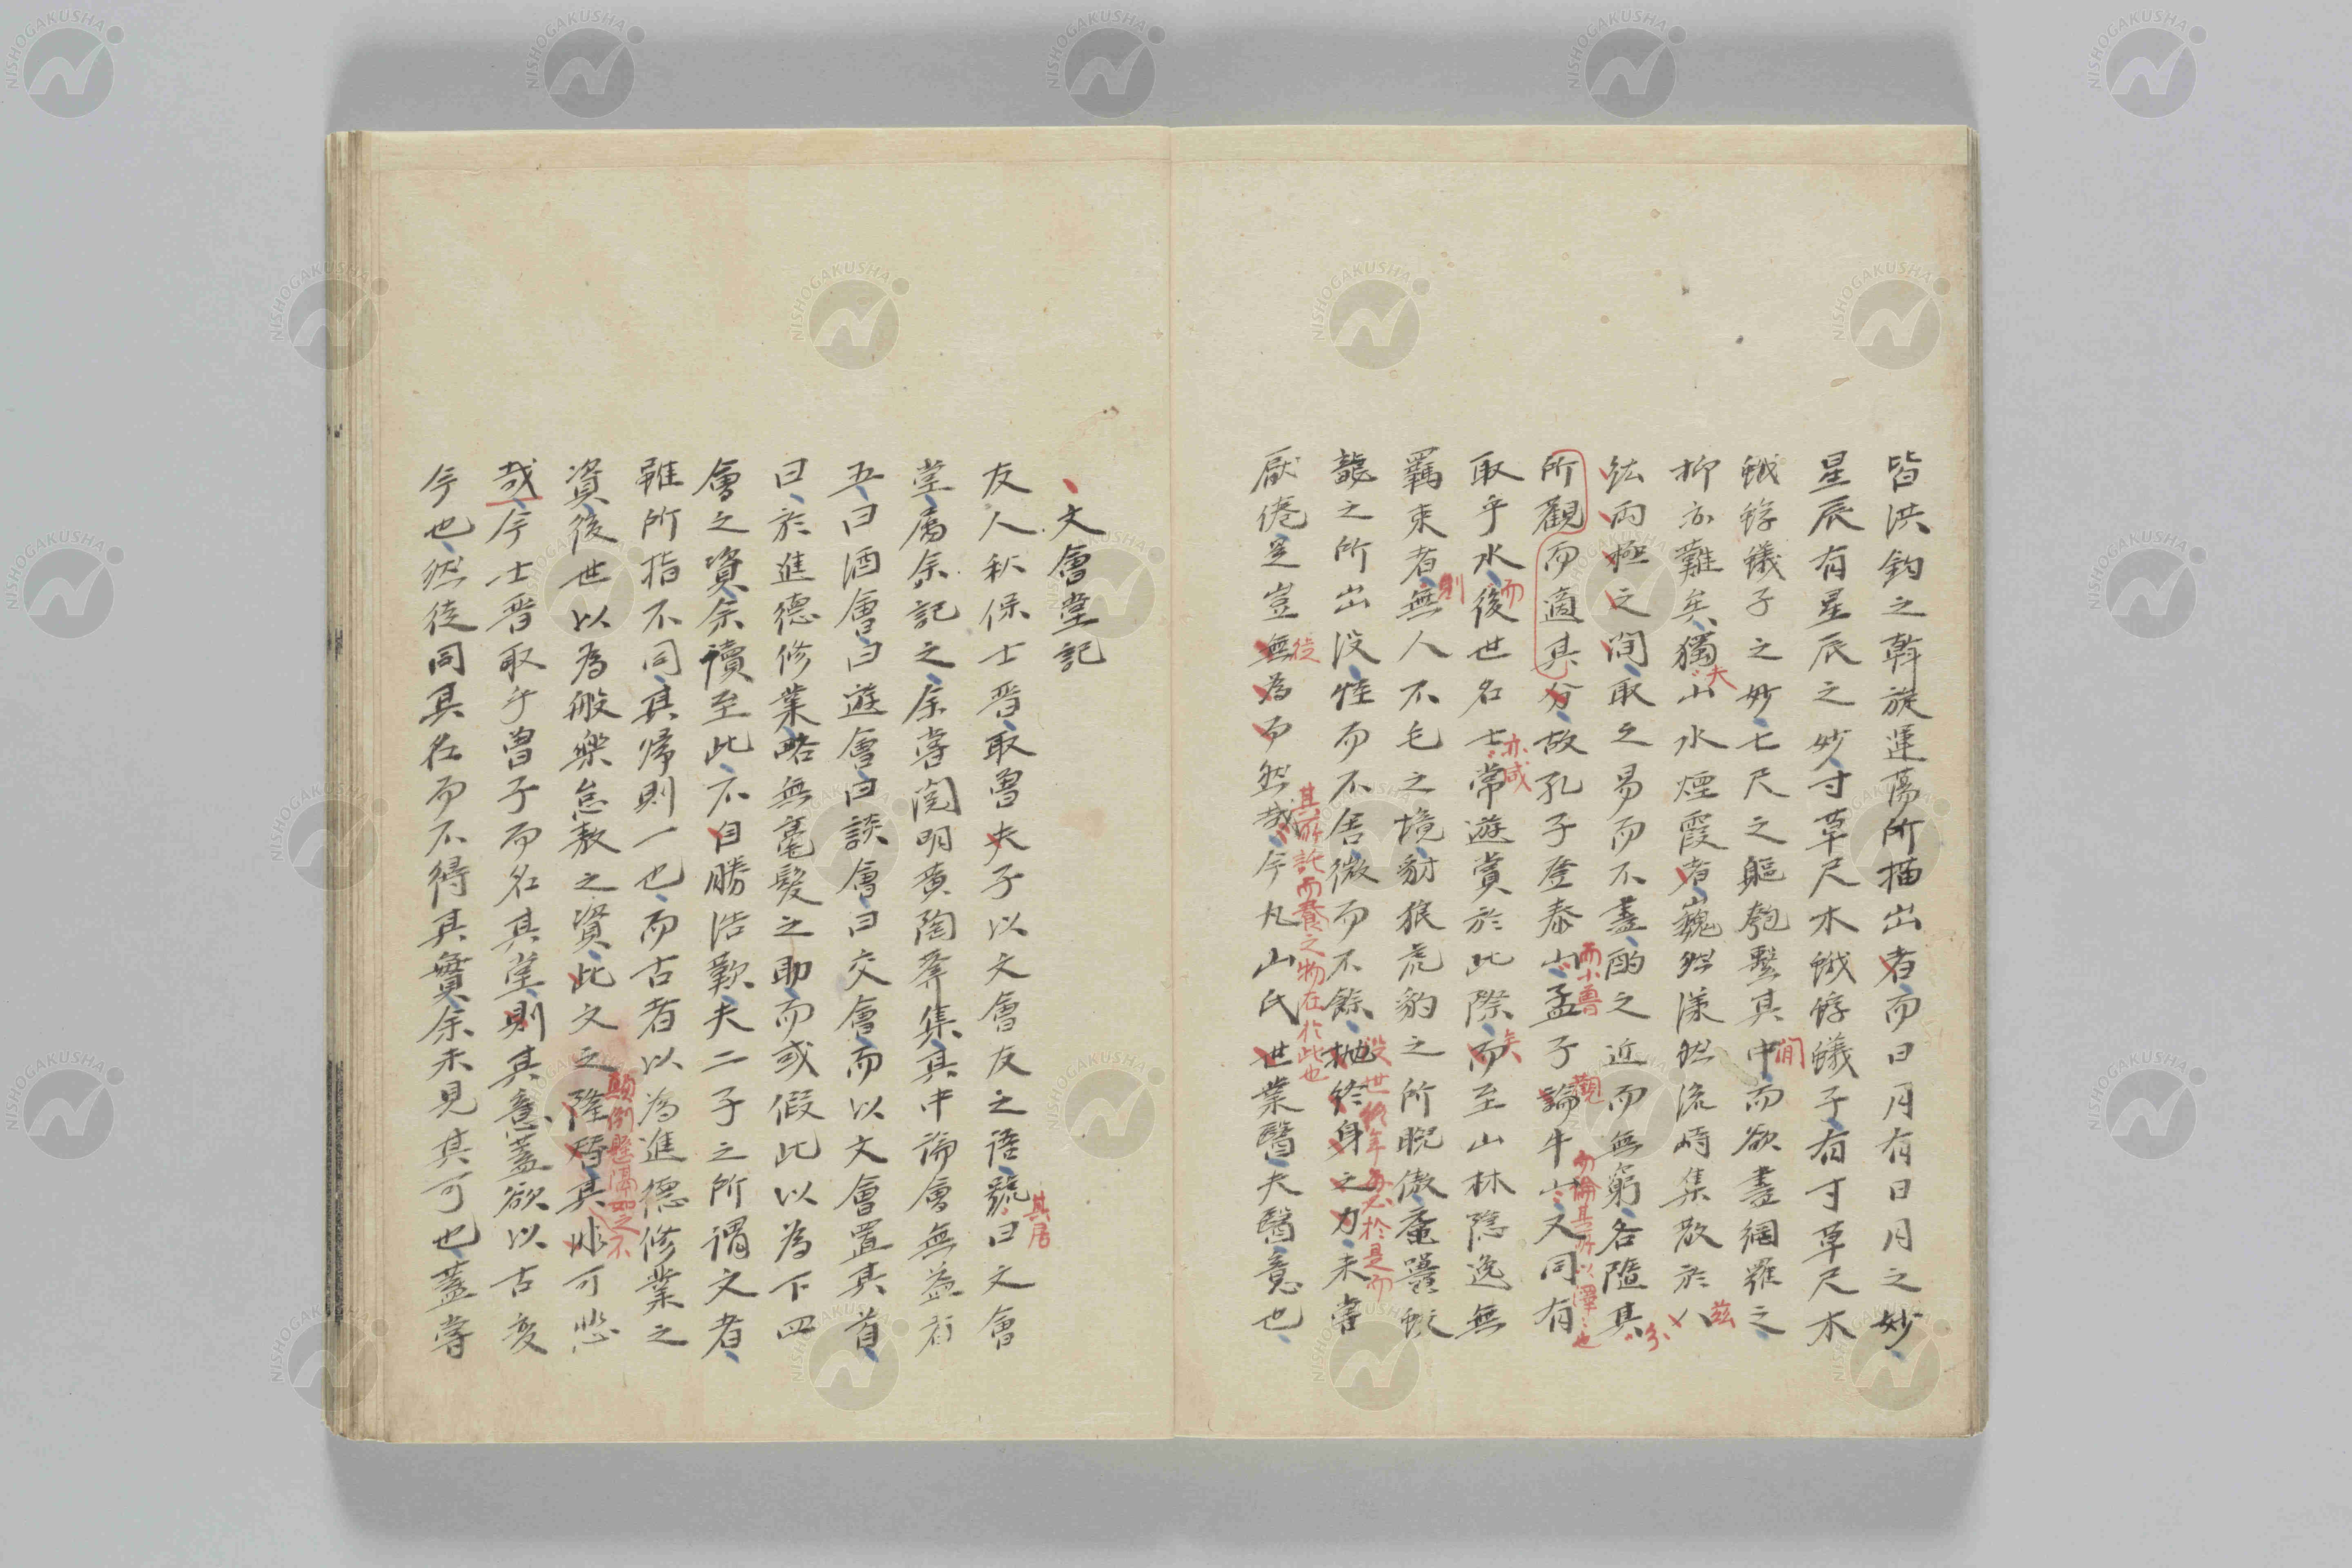 皆洪鈞之斡旋運蕩所描出者而日月有日月之妙
星辰有星辰之妙寸草尺木蛾蜉蟻子有寸草尺木
蛾蜉蟻子之妙七尺之軀匏繫其中而欲盡網羅之
間
抑亦難矣獨山水煙霞者巍然漾然流峙集散於八
夫
茲
紘兩極之間取之易而不盡酌之近而無窮各隨其
分
所觀而適其分故孔子登泰山孟子論牛山又同有
而小魯
觀
取乎水後世名士常遊賞於此際而至山林隱逸無
而
亦咸
矣
羈束者無人不毛之境豺狼虎豹之所睨傲黿鼉蛟
則
龍之所出沒怪而不居微而不餘拋終身之力未嘗
沒世終年
於是而
厭倦是豈無為而然哉今凡山氏世業醫夫醫意也
從
其所託而養之物在於此也
文會堂記
友人秋保士晋取曾夫子以文會友之語號曰文會
其居
堂屬余記之余嘗閱明黄陶菴集其中論會無益有
五曰酒會曰遊會曰談會曰交會而以文會置其首
曰於進德修業略無毫髮之助而或假此以為下四
會之資余讀至此不自勝浩歎夫二子之所謂文者
雖所指不同其歸則一也而古者以為進德修業之
資後世以為般樂怠敖之資此文之隆替其非可悲
顛倒懸隔如之不
哉今士晋取乎曾子而名其堂則其意蓋欲以古変
今也然徒同其名而不得其實余未見其可也蓋嘗